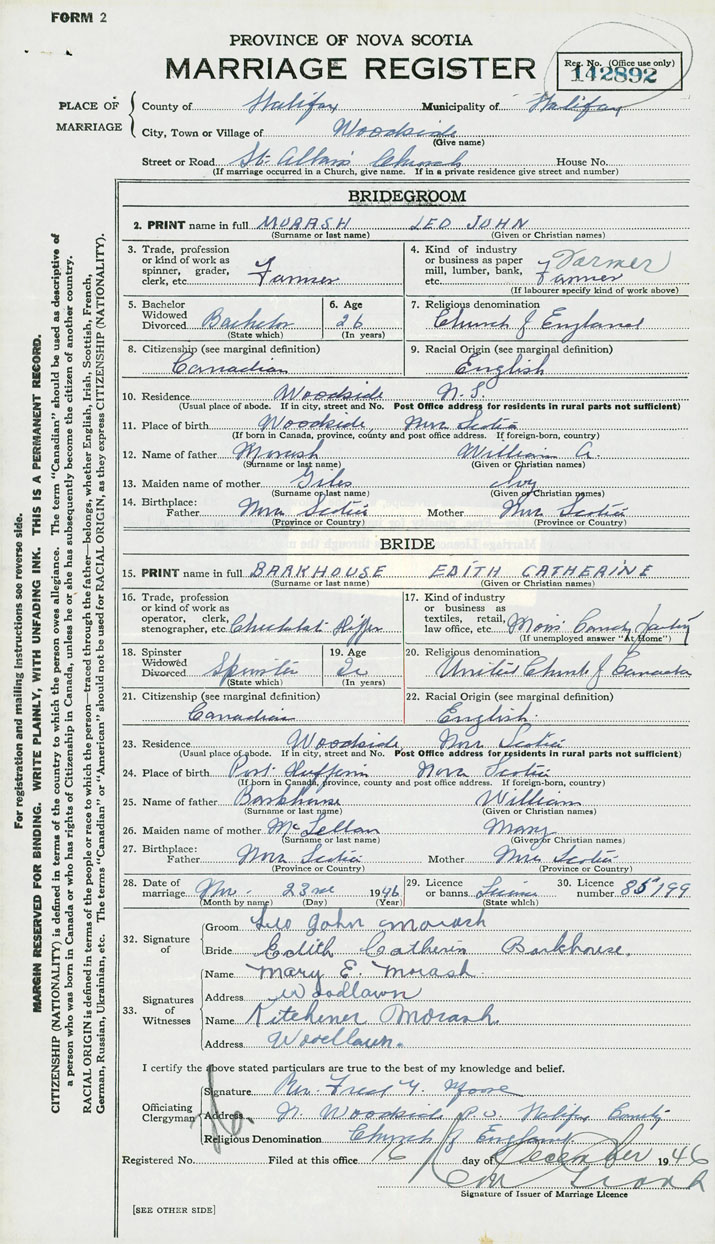 FORM 2
PROVINCE OF NOVA SCOTIA
MARRIAGE REGISTER
Reg. No. (Office use only)
142892
PLACE OF MARRIAGE
County of Halifax Municipality of Halifax
City, Town or Village of Woodside
(Give name)
Street or Road St. Alban's Church House No.
(If marriage occurred in a Church, give name. If in a private residence give street and number)
BRIDEGROOM
2. PRINT name in full MORASH LEO JOHN
(Surname or last name) (Given or Christian names)
3. Trade, profession or kind of work as spinner, grader, clerk, etc. Farmer
4. Kind of industry or business as paper mill, lumber, bank, etc. Farmer Farmer
(If labourer specify kind of work above)
5. Bachelor Widowed Divorced Bachelor
(State which)
6. Age 26
(In years)
7. Religious denomination
Church of England
8. Citizenship (see marginal definition)
Canadian
9. Racial Origin (see marginal definition)
English
10. Residence Woodside N.S.
(Usual place of abode. If in city, street and No. Post Office address for residents in rural parts not sufficient)
11. Place of birth Woodside, Nova Scotia
(If born in Canada, province, county and post office address. If foreign-born, country)
12. Name of father Morash William A.
(Surname or last name) (Given or Christian names)
13. Maiden name of mother Giles Ivy
(Surname or last name) (Given or Christian names)
14. Birthplace: Father Nova Scotia Mother Nova Scotia
(Province or Country) (Province or Country)
BRIDE
15. PRINT name in full BARKHOUSE EDITH CATHERINE
(Surname or last name) Given or Christian names)
16. Trade, profession or kind of work as operator, clerk, stenographer, etc. Chocolate Dipper
17. Kind of industry or business as textiles, retail, law office, etc. Moirs Candy
(If unemployed answer "At Home")
18. Spinster Widowed Divorced Spinster
(State which)
19. Age
(In years)
20. Religious denomination
United Church of Canada
21. Citizenship (see marginal definition)
Canadian
22. Racial Origin (see marginal definition)
English
23. Residence Woodside, Nova Scotia
(Usual place of abode. If in city, street and No. Post Office address for residents in rural parts not sufficient)
24. Place of birth Port Dufferin Nova Scotia
(If born in Canada, province, county and post office address. If foreign-born, country)
25. Name of father Barkhouse William
(Surname or last name) (Given or Christian names)
26. Maiden name of mother McLellan Mary
(Surname or last name) (Given or Christian names)
27. Birthplace: Father Nova Scotia Mother Nova Scotia
(Province or Country) (Province or Country)
28. Date of marriage Nov. 23rd 1946
(Month by name) (Day) (Year)
29. Licence or banns License
(State which)
30. Licence number 85199
32. Signature of
Groom Leo John Morash
Bride Edith Catherin Barkhouse.
33. Signatures of Witnesses
Name Mary E. Morash
Address Woodlawn
Name Kitchener Morash
Address Woodlawn.
I certify the above stated particulars are true to the best of my knowledge and belief.
Officiating Clergyman
Signature Rev. Fred Y. Moore
Address N. Woodside P.O. Halifax County
Religious Denomination Church of England
Registered No. Filed at this office 16 day of December 1946
Signature of Issuer of Marriage Licence
[SEE OTHER SIDE]
For registration and mailing instructions see reverse side.
MARGIN RESERVED FOR BINDING. WRITE PLAINLY, WITH UNFADING INK. THIS IS A PERMANENT RECORD.
CITIZENSHIP (NATIONALITY) is defined in terms of the country to which the person owes allegiance. The term "Canadian" should be used as descriptive of
a person who was born in Canada or who has rights of Citizenship in Canada, unless he or she has subsequently become the citizen of another country.
RACIAL ORIGIN is defined in terms of the people or race to which the person—traced through the father—belongs, whether English, Irish, Scottish, French,
German, Russian, Ukrainian, etc. The terms "Canadian" or "American" should not be used for RACIAL ORIGIN, as they express CITIZENSHIP (NATIONALITY).